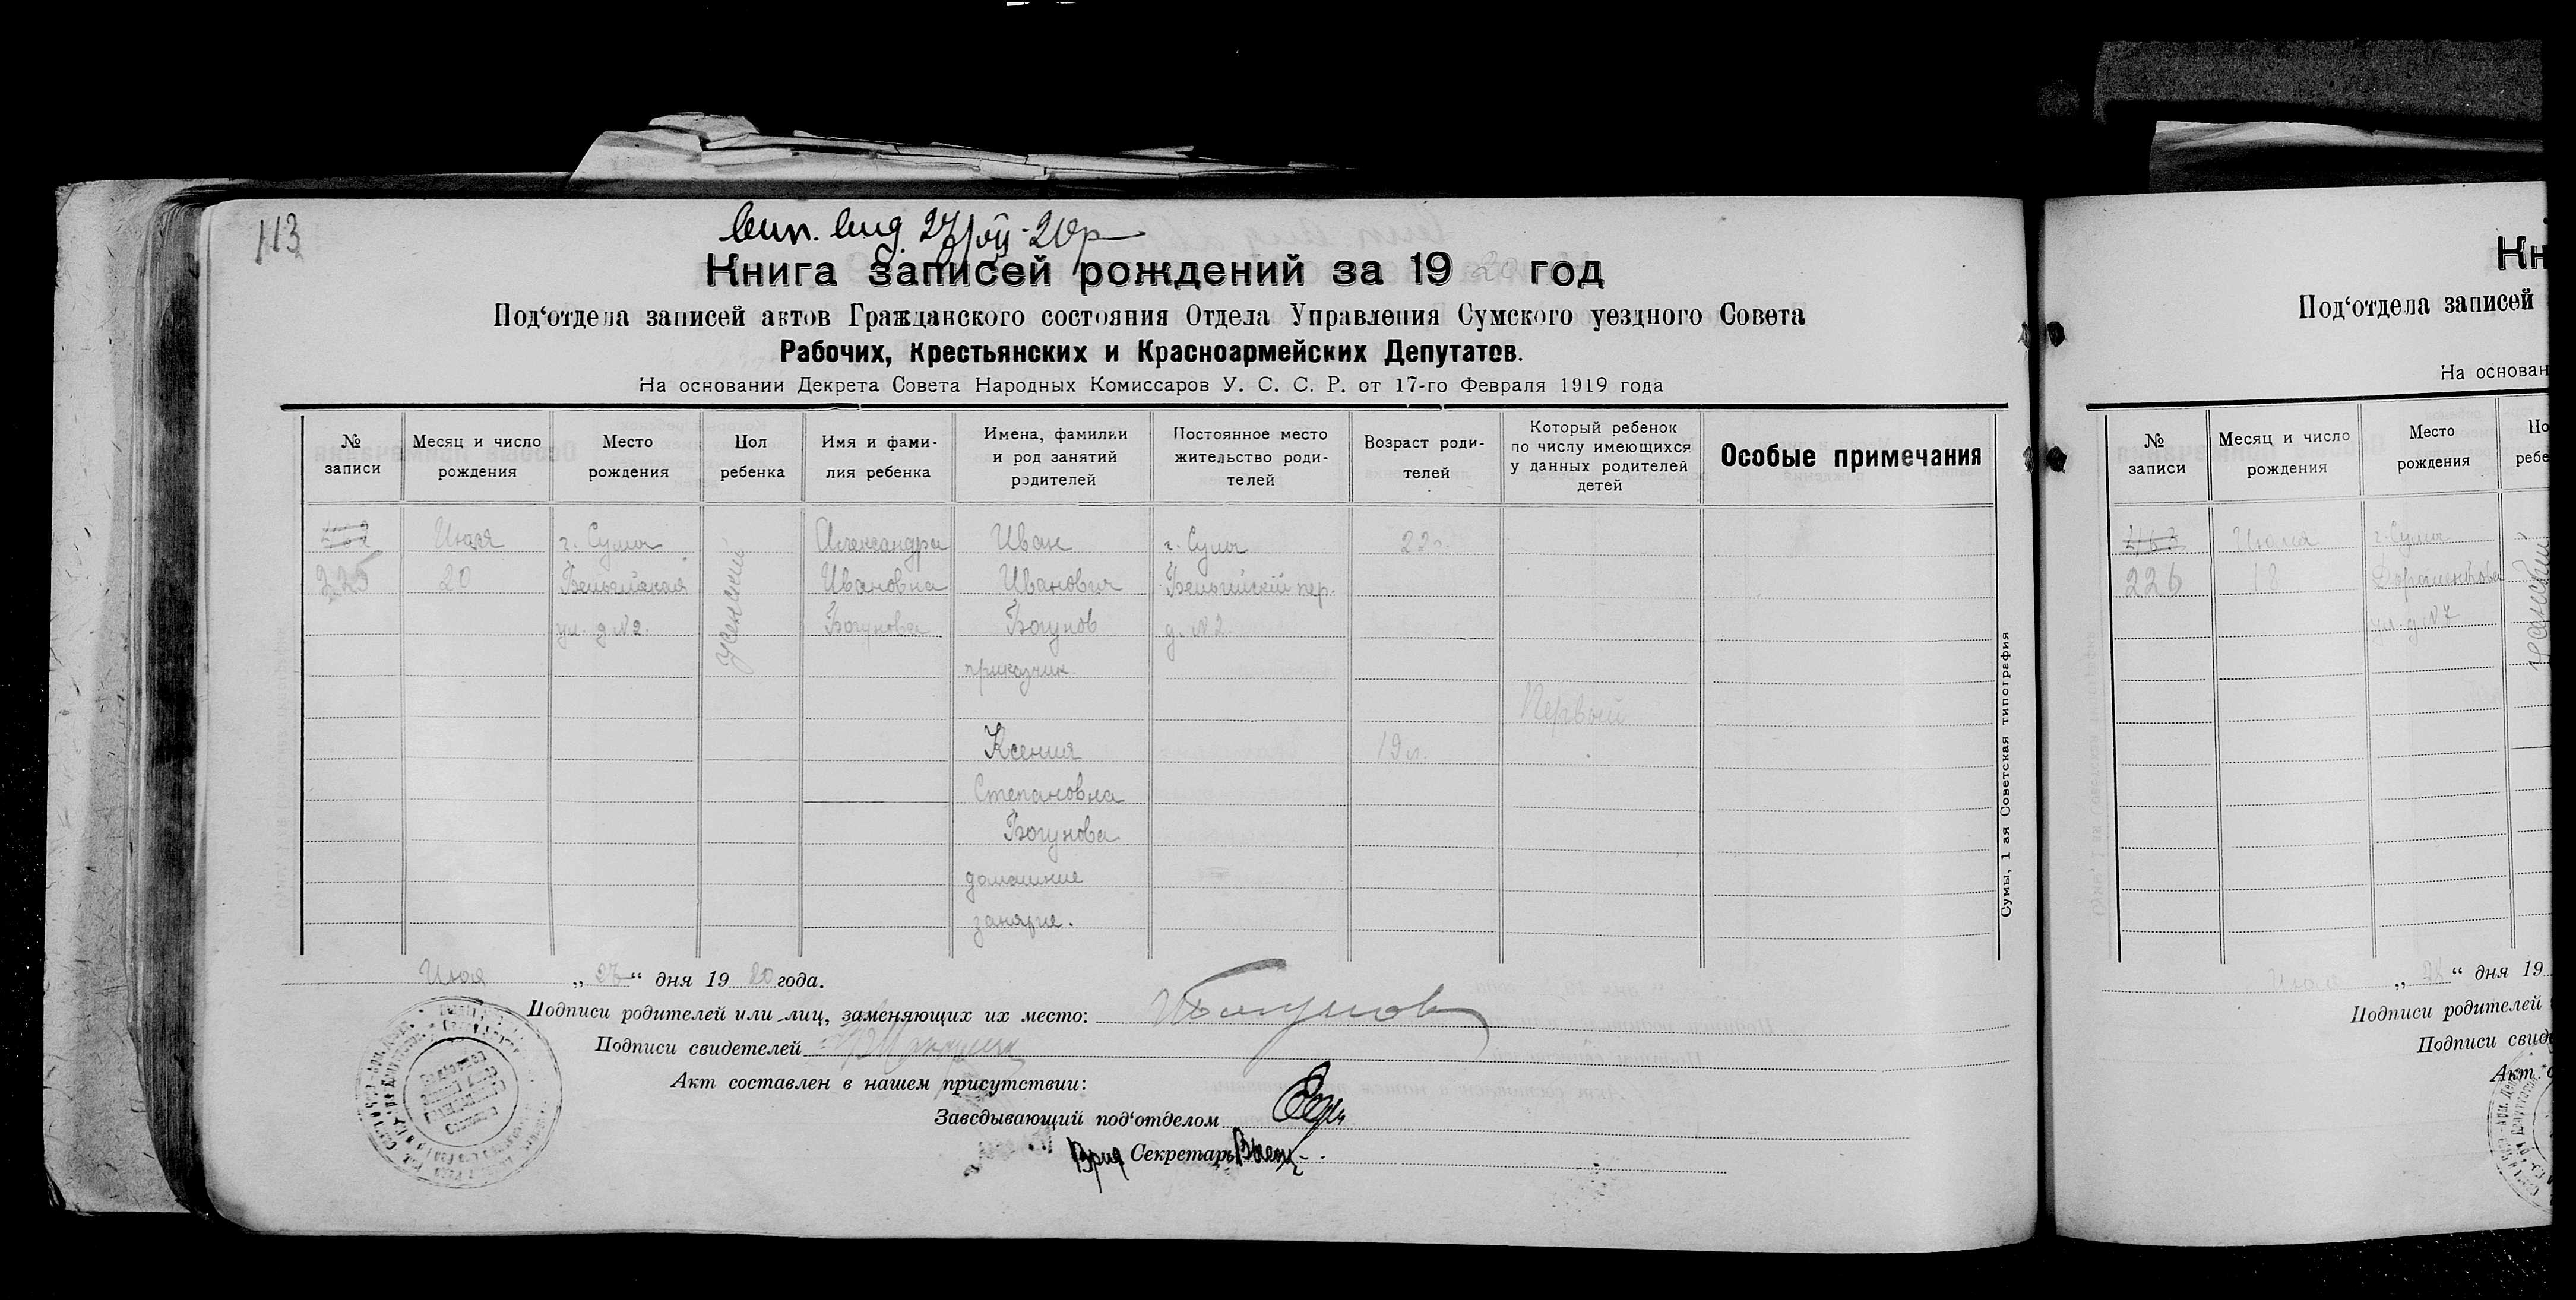 113
Вып. выд. 27/VII-20р
Книга записей рождений за 1920 год
Под‘отдела записей актов Гражданского состояния Отдела Управления Сумского уездного Совета
Рабочих, Крестьянских и Красноармейских Депутатов.
На основании Декрета Совета Народных Комиссаров У. С. С. Р. от 17-го Февраля 1919 года
№ записи
Месяц и число рождения
Место рождения
Пол ребенка
Имя и фами-
лия ребенка
Имена, фамилки
и род занятий
родителей
Постоянное место
жительство роди-
телей
Возраст роди-
телей
Который ребенок
по числу имеющихся
у данных родителей
детей
Особые примечания
225
Июля
20
г. Сумы
Бельгийская
ул. д №2.
женский
Александра
Ивановна
Богунова
Иван
Иванович
Богунов
приказчик.
Ксения
Степановна
Богунова
домашние
занятие.
г. Сумы
Бельгийский пер.
д. №2.
22.
19 л.
Первый
Июля „27“ дня 1920 года.
Подписи родителей или лиц, заменяющих их место: ИБогунов
Подписи свидетелей
Акт составлен в нашем присутствии:
Заведывающий под‘отделом
Врид Секретарь
Сумы, 1 ая Советская типография
Кн
Под‘отдела записей
На основан
№ записи
Месяц и число рождения
Место рождения
По
ребе
226
Июля
18
г. Сумы
ул. д №7
женский
Июля „28“ дня 19
Подписи родителей
Подписи свид
Акт с